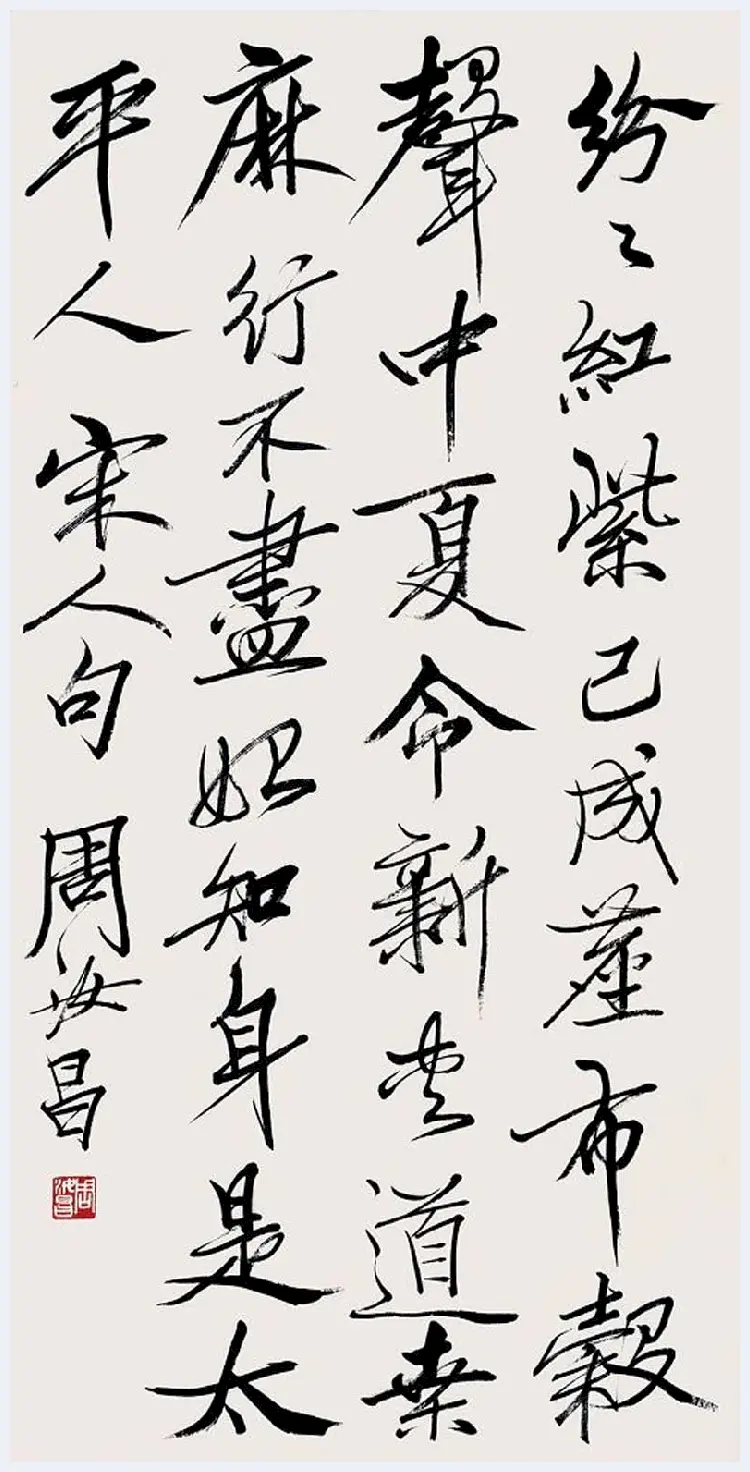 紛々紅紫已成塵布穀
聲中夏令新夾道桒
麻行不盡始知身是太
平人 宋人句 周汝昌
周汝昌